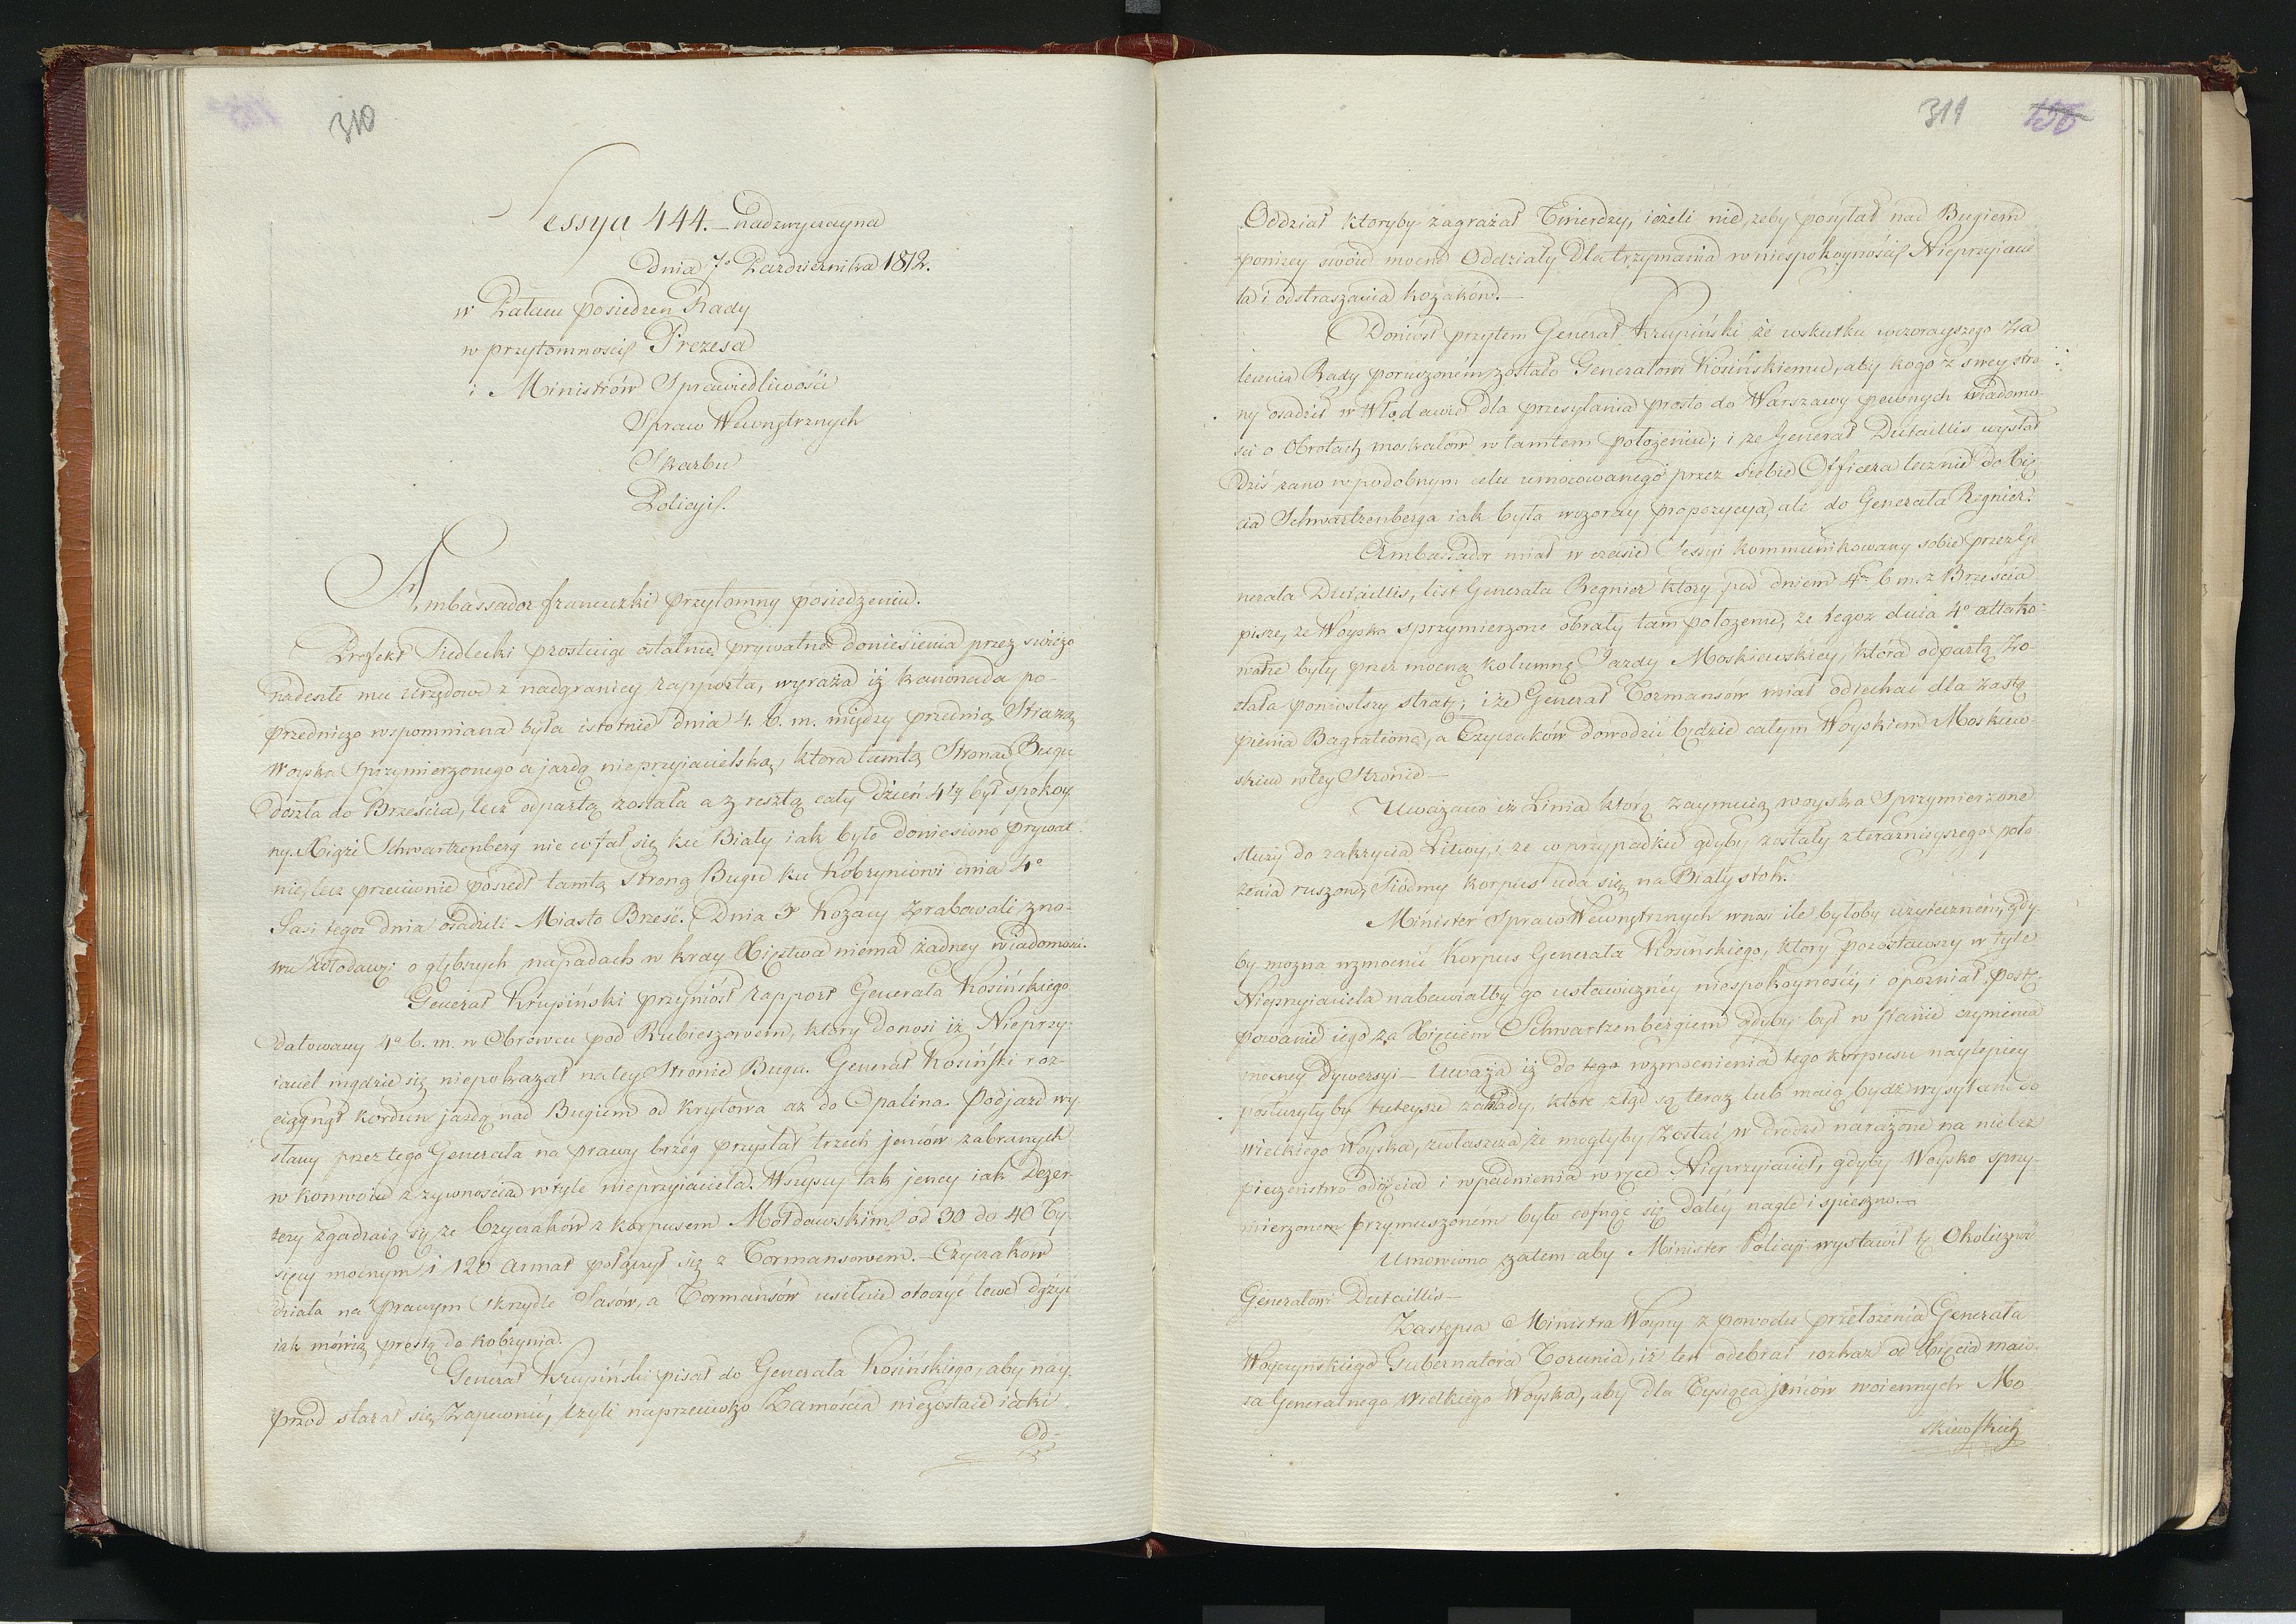 310
Sessya 444. – nadzwyczayna
Dnia 7o Października 1812.
w Pałacu posiedzen Rady
w przytomności Prezesa
i Ministrów Sprawiedliwości
Spraw Wewnętrznych
Skarbu
Policyi.
Ambassador francuzki przytomny posiedzeniu.
Prefekt Siedlecki prostuiąc ostatnie prywatne doniesienia przez świeżo
nadeszłe mu urzędowe z nadgranicy rapporta, wyraża iż kanonada po-
przedniczo wspomniana była istotnie dnia 4. b. m. między przednią Strażą
Woyska sprzymierzonego a jazdą nieprzyiacielską, która tamtą Stroną Bugu
doszła do Brześcia, lecz odpartą została a z resztą cały dzień 4ty był spokoy
ny. Xiąże Schwartzenberg nie cofał się ku Biały iak było doniesiono prywat
nie, lecz przeciwnie poszedł tamtą stroną Bugu ku Kobryniowi dnia 4o
Sasi tegoż dnia osadzili Miasto Brześć. Dnia 3o Kozacy zrabowali zno-
wu Włodawę o głębszych napadach w kray Xięstwa niema żadney wiadomości.
Generał Krupiński przyniósł rapport Generała Kosińskiego
datowany 4o b. m. w Obrowcu pod Rubieszowem, który donosi iż Nieprzy-
iaciel nigdzie się niepokazał na tey Stronie Bugu. Generał Kosiński roz-
ciągnął kordun jazdą nad Bugiem od Kryłowa aż do Opalina. Podjazd wy-
słany przez tego Generała na prawy brzég przysłał trzech jenców zabranych
w konwoiu z żywnością w tyle nieprzyiaciela. Wszyscy tak jency iak Dezer
terzy zgadzaią się że Czyczaków z korpusem Mołdawskim od 30 do 40 Ty-
sięcy mocnym i 120 armat połączył się z Tormansowem. – Czyczakow
działa na prawym skrzydle Sasów, a Tormansów usiłuie otoczyć lewe dążąc
iak mówią prosto do Kobrynia.
Generał Krupiński pisał do Generała Kosińskiego, aby nay-
przod starał się zapewnić, czyli naprzeciwko Zamościa niezostaie iaki
Od-
311 156
Oddział któryby zagrażał Twierdzy, ieżeli nie, żeby posyłał nad Bugiem
poniżey swoie mocne Oddziały dla trzymania w niespokoyności Nieprzyiacie
la i odstraszania kozaków. –
Doniósł przytem Generał Krupiński że wskutku wczorayszego Za
lecenia Rady poruczoném zostało Generałowi Kosińskiemu, aby kogo z swey stro
ny osadził w Włodawie dla przesyłania prosto do Warszawy pewnych wiadomo-
sci o Obrotach moskalów w tamtem położeniu; i że Generał Dutaillis wysłał
dziś rano w podobnym celu umocowanego przez siebie Officera lecznie do Xię
cia Schwartzenberga iak była wczoray propozycya, ale do Generała Regnier.
Ambassador miał w czasie Sessyi kommunikowany sobie przez Ge
nerała Dutaillis, list Generała Regnier który pod dniem 4m b. m. z Brześcia
pisze, że Woyska sprzymierzone obrały tam położenie, że tegoż dnia 4o attako-
wane były przez mocną kolumnę Jazdy Moskiewskiey, która odpartą zo-
stała poniosłszy stratę; i że Generał Tormansow miał odiechać dla zastą-
pienia Bagrationa, a Czyczaków dowodzić będzie całym Woyskiem Moskiew-
skiem w tey Stronie –
Uważano iż Linia którą zaymuią woyska Sprzymierzone
służy do zakrycia Litwy, i że w przypadku gdyby zostały z teraznieyszego poło
żenia ruszone, Siódmy korpus uda się na Białystok.
Minister Spraw Wewnętrznych wnosi ile byłoby użyteczném, gdy-
by można wzmocnić Korpus Generała Kosińskiego, który pozostawszy w tyle
Nieprzyiaciela nabawiałby go ustawiczney niespokoyności, i opoźniał postę-
powanie iego za Xięciem Schwartzenbergiem gdyby był w stanie czynienia
mocney dywersyi – Uważa iż do tego wzmocnienia tego korpusu naylepiey
posłużyłyby tuteysze zakłady, które ztąd są teraz lub maią bydź wysyłane do
Wielkiego Woyska, zwłaszcza, że mogłyby zostać w drodze narażone na niebez
pieczeństwo odcięcia i wpadnienia w ręce Nieprzyiaciół, gdyby Woysko sprzy-
mierzone przymuszoném było cofnąć się daléy nagle i spieszno. –
Umowiono zatem aby Minister Policyi wystawił tę Okoliczność
Generałowi Dutaillis –
Zastępca Ministra Woyny z powodu przełożenia Generała
Woyczyńskiego Gubernatora Torunia, iż ten odebrał rozkaz od Xięcia maio-
ra Generalnego Wielkiego Woyska, aby dla Tysiąca jeńców woiennych Mo
skiewskich